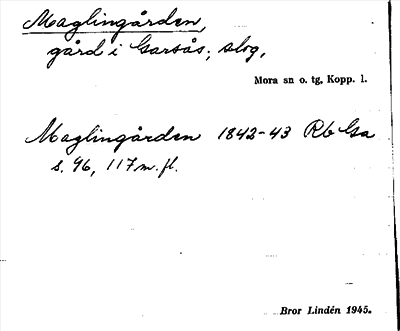 Maglingården,
gård i Garsås, slog,
Mora sn o. tg, Kopp. l.
Maglingården 1842-43 Rb Gsa
s. 96, 117 m. fl.
Bror Lindén 1945.